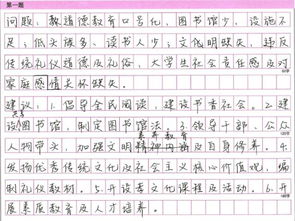 第一题
问题：数道德教育口号化，图书馆少，设施不
足；低头族多，读书人少；文化明缺失，违反
传统道德及礼俗，大学生社会责任感及对
家庭感情关怀缺失。
建议：1.倡导全民阅读，建设书香社会。2.建
设图书馆，制定图书馆法。3.领导干部、公众
人物带头，加强文明素养教育及自身修养。4.
发扬优秀传统文化及社会主义核心价值观，编
制礼仪教材。5.开设孝文化课程及活动。6.开
展素质教育及人才培养。